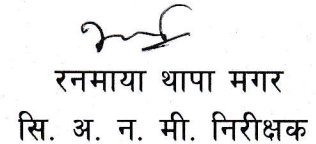 रनमाया थापा मगर
सि. अ. न. मी. निरीक्षक